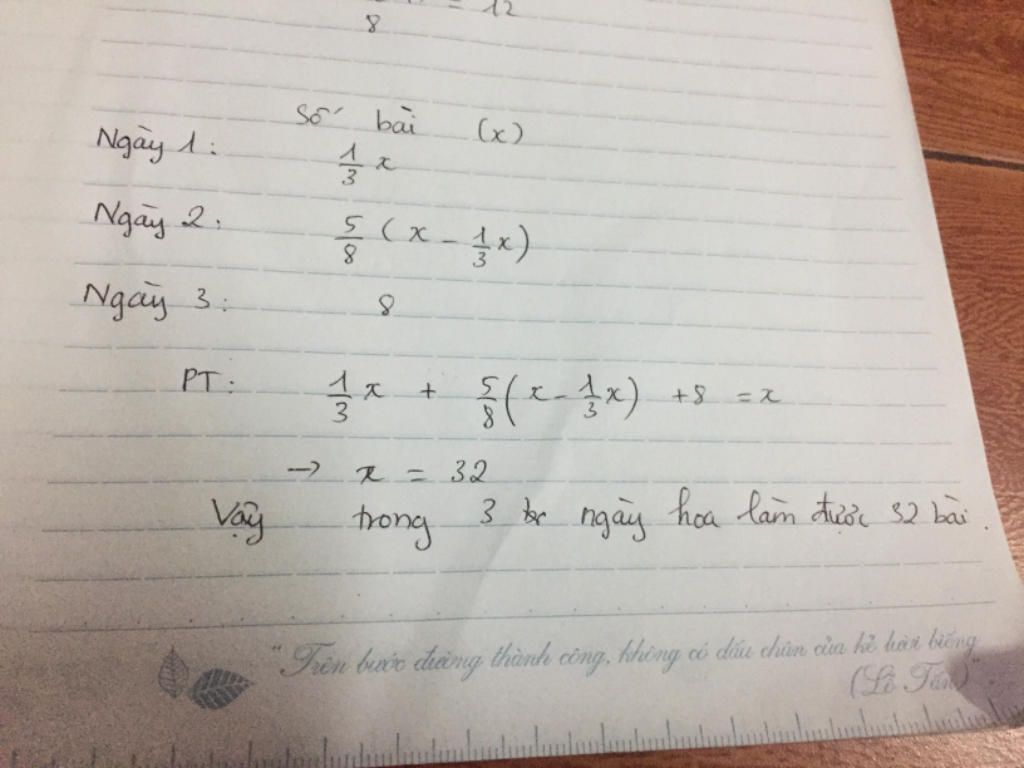 8 = 12
Số bài (x)
Ngày 1: 1/3 x
Ngày 2: 5/8 (x - 1/3 x)
Ngày 3: 8
PT: 1/3 x + 5/8 (x - 1/3 x) + 8 = x
→ x = 32
Vậy trong 3 ngày hoa làm được 32 bài.
"Trên bước đường thành công, không có dấu chân của kẻ lười biếng"
(Lỗ Tấn)